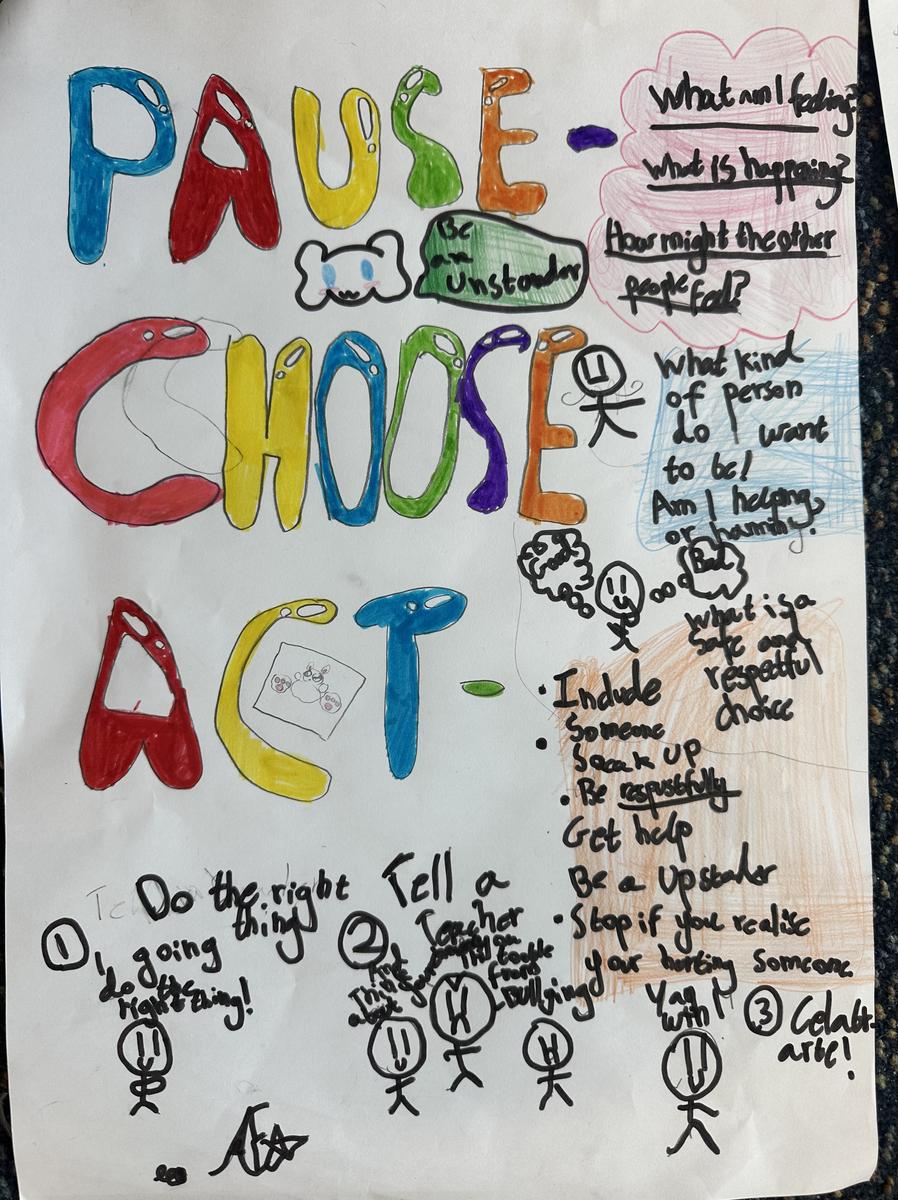 PAUSE -
What am I feeling?
What is happening?
How might the other
people feel?
Be
an
unstander
CHOOSE
What kind
of person
do I want
to be!
Am I helping,
or harming?
Good
Bad
ACT -
What is a
safe and
respectful
choice
• Include
someone
• Speak UP
• Be respustfully
Get help
Be a Upstader
• Stop if you realise
your hurting someone
① Do the right
thing
I going
do the
right thing!
② Tell a
Teacher
And
Think
about
your
from
bullying
③ Celabr-
arte!
Yay I
with